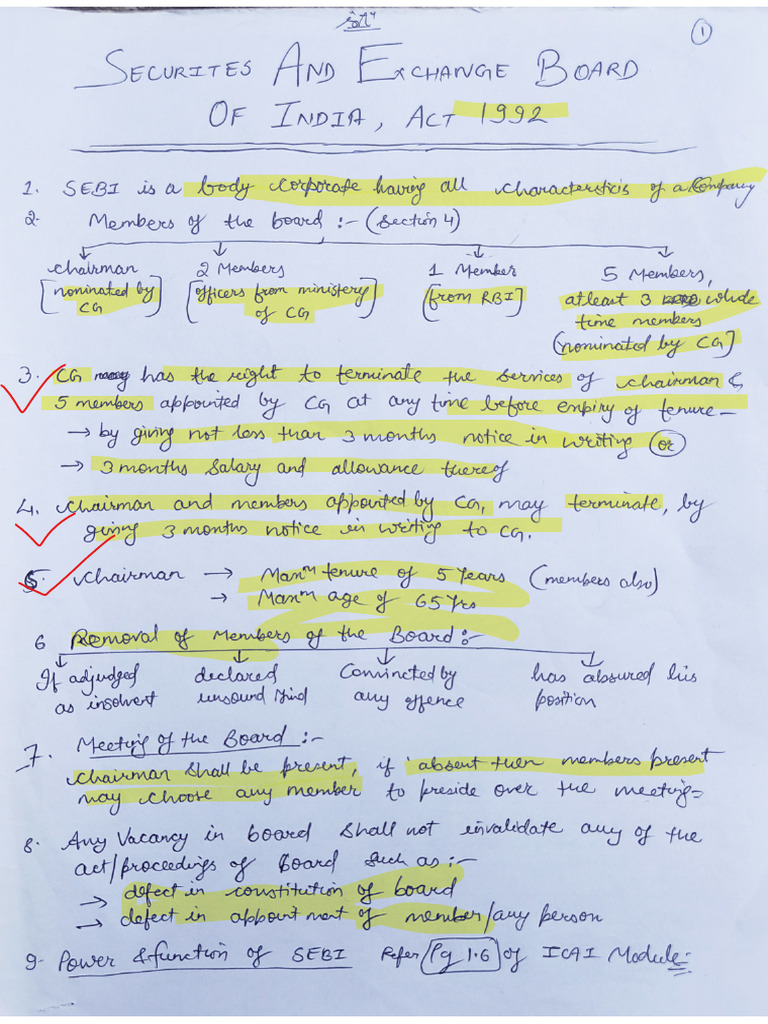 1
SECURITES AND EXCHANGE BOARD
OF INDIA, ACT 1992
1. SEBI is a body corporate having all characteristics of a Company
2- Members of the board :- (Section 4)
chairman 2 Members 1 Member 5 Members,
[nominated by [officers from ministery [from RBI] atleast 3 whole
CG] of CG] time members
(nominated by CG]
3. CG has the right to terminate the services of chairman &
5 members appointed by CG at any time before expiry of tenure-
→ by giving not less than 3 months notice in writing (or)
→ 3 months salary and allowance thereof
4. chairman and members appointed by CG, may terminate, by
giving 3 months notice in writing to CG.
5. chairman → Maxm tenure of 5 years (members also)
→ Maxm age of 65 yrs
6 Removal of Members of the Board:-
If adjudged declared Convincted by has absured his
as insolvent unsound Mind any offence position
7. Meeting of the Board :-
chairman shall be present, if absent then members present
may choose any member to preside over the meeting=
8. Any Vacancy in board shall not invalidate any of the
act/proceedings of Board such as :-
→ defect in constitution of board
→ defect in appointment of member/any person
9- Power & function of SEBI Refer Pg 1.6 of ICAI Module:-